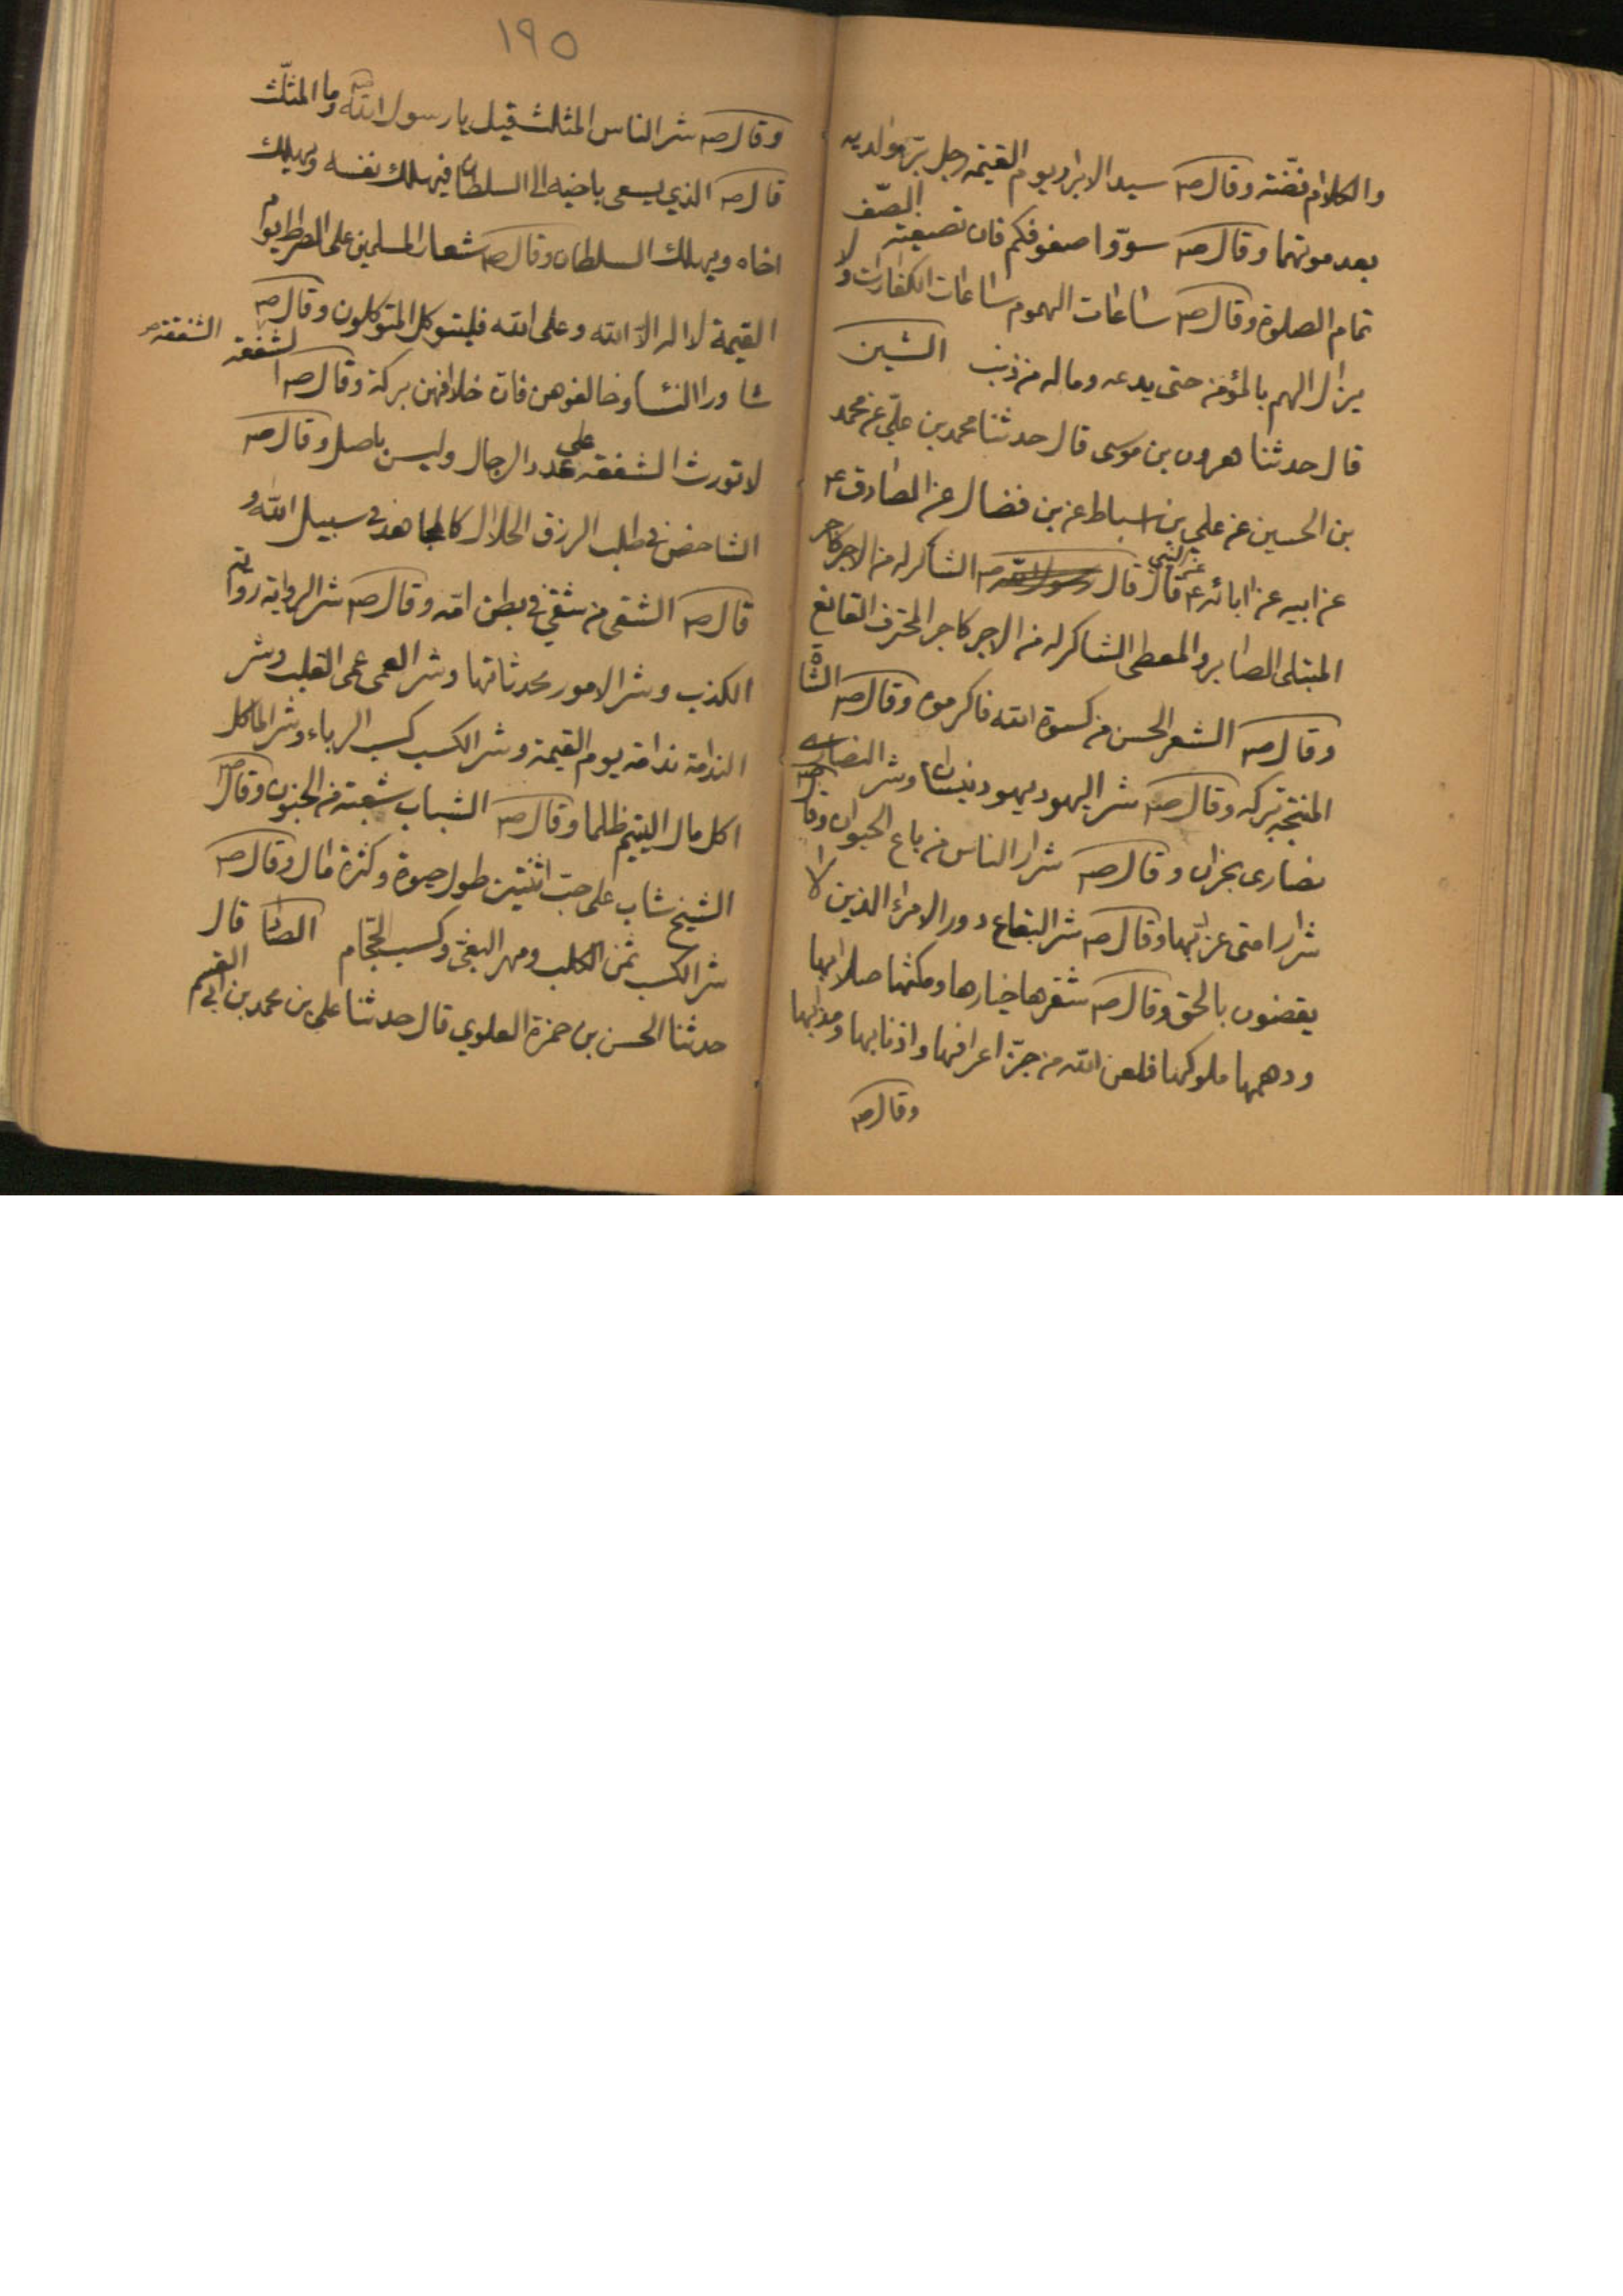 والكلام فضّته وقال ص سيد الابرار يوم القيمه رجل برّ والديه
بعد موتهما وقال ص سوّوا صفوفكم فان تصبعته الصّف
تمام الصلوة وقال ص ساعات الهموم ساعات الكفارات ولا
يزال الهم بالمؤمن حتى يدعه وماله من ذنب الشين
قال حدثنا هرون بن موسى قال حدثنا محمد بن علي عن محمد
بن الحسين عن علي بن اسباط عن بن فضال عن الصادق ع
عن ابيه عن ابائه ع عن النبي قال قال رسول الله ص الشاكر له من الاجر كاجر
المبتلى الصابر والمعطى الشاكر له من الاجر كاجر المحترف القانع
وقال ص الشعر الحسن من كسوة الله فاكرموه وقال ص الشاة
المنتجه بركه وقال ص شر اليهود يهود بنيسان وشر النصارى
نصارى نجران وقال ص شرار الناس من باع الحيوان وقال ص
شرار امتى عزّابها وقال ص شر البقاع دور الامراء الذين لا
يقضون بالحق وقال ص شقرها خيارها وكمتها صلابها
ودهمها ملوكها فلعن الله من جزّ اعرافها واذنابها ومذابها
وقال ص
١٩٥
وقال ص شر الناس المثلث قيل يا رسول الله ص وما المثلّث
قال ص الذي يسعى باخيه الى السلطان فيهلك نفسه ويهلك
اخاه ويهلك السلطان وقال ص شعار المسلمين على الصراط يوم
القيمة لا اله الا الله وعلى الله فليتوكل المتوكلون وقال ص
شاوروا النساء وخالفوهن فان خلافهن بركة وقال ص الشفعة
الشفقة
لا تورث الشفقة على عدد الرجال وليس باصل وقال ص
الشاخص في طلب الرزق الحلال كالمجاهد في سبيل الله و
قال ص الشقى من شقى في بطن امه وقال ص شر الرواية رواية
الكذب وشر الامور محدثاتها وشر العمى عمى القلب وشر
الندامة ندامة يوم القيمة وشر الكسب كسب الرباء وشر الماكل
اكل مال اليتيم ظلما وقال ص الشباب شعبته من الجنون وقال ص
الشيخ شاب على حب اثنتين طول حيوة وكثرة مال وقال ص
شر الكسب ثمن الكلب ومهر البغى وكسب الحجّام الصاد قال
حدثنا الحسن بن حمزة العلوي قال حدثنا علي بن محمد بن ابي القسم